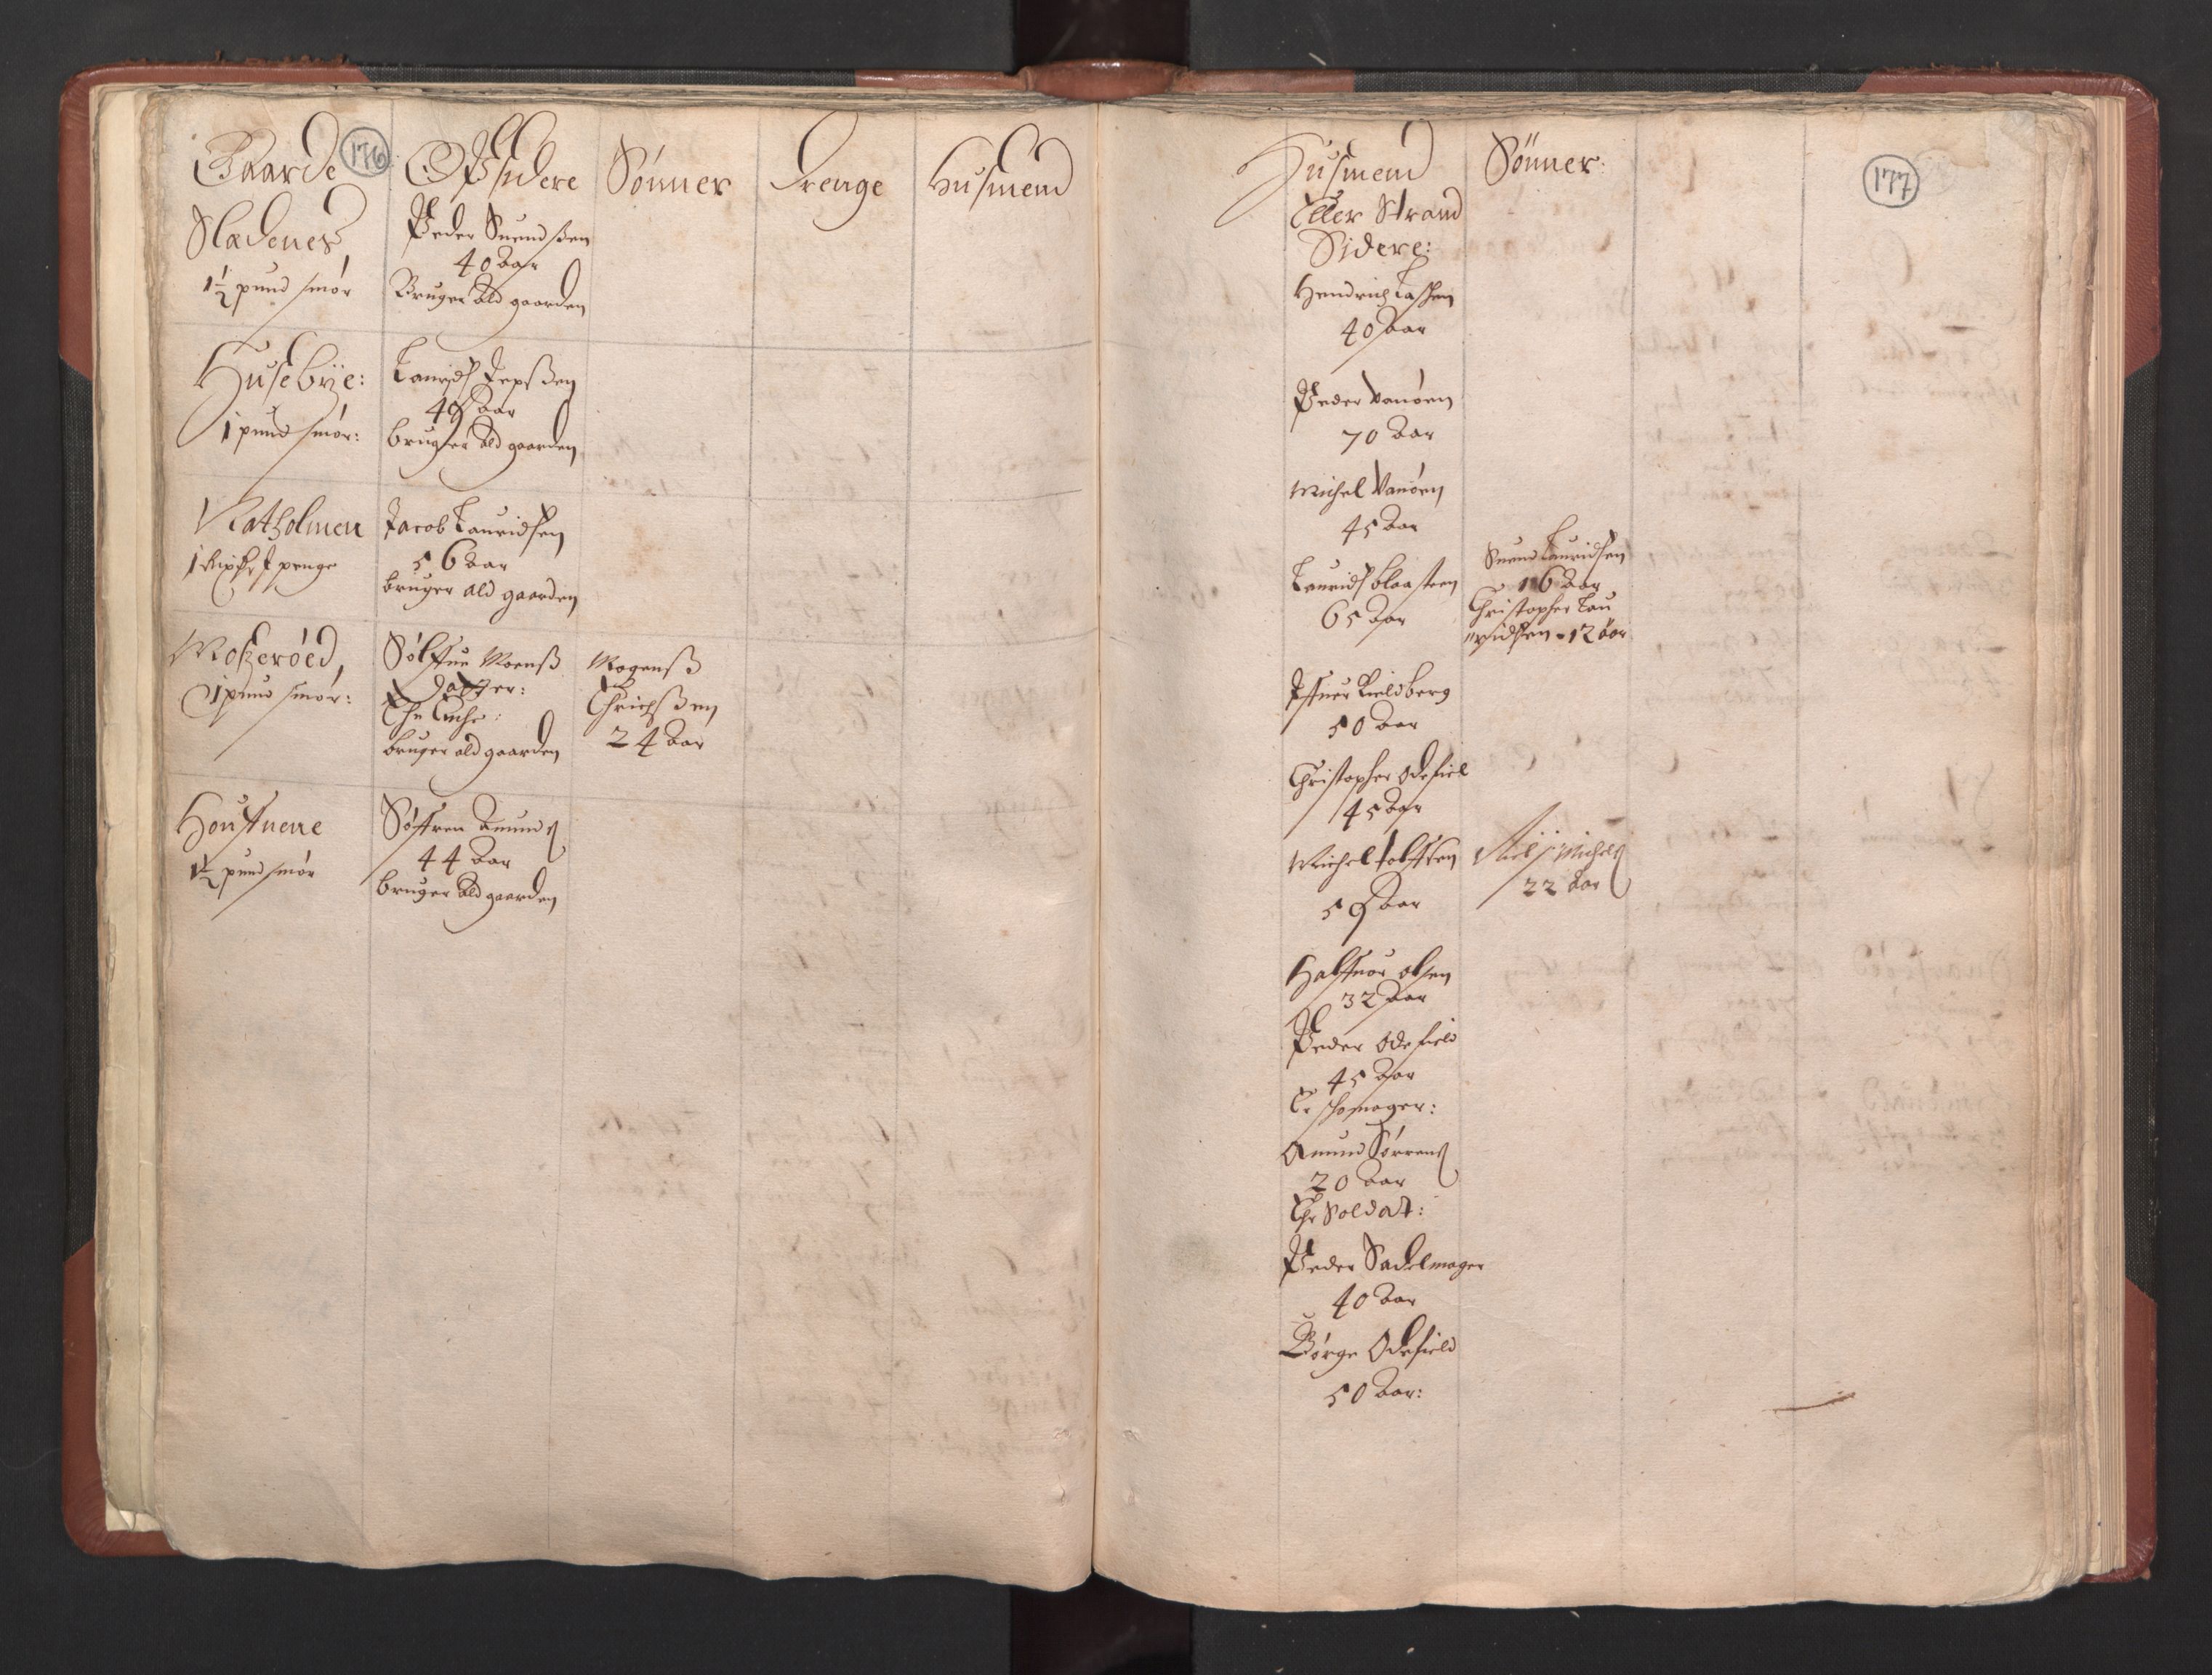 Gaarde
176
Opsidere
Sönner
Drenge
Husmend
Sladenes
1½ pund smör
Peder Suendsßen
40 Aar
Bruger Ald gaarden
Husebÿe:
1 pund smör:
Lauridß Jepsßen
49 Aar
bruger Ald gaarden
Katholmen
penge
Jacob Lauridsen
56 Aar
bruger ald gaarden
Mokeröed
1 pund smör:
Sölffue Moenß
Datter:
En Encke:
bruger ald gaarden
Mogenß
Erichsßen
24 Aar
Houffuene
1½ pund smör
Söffren Amunds
44 Aar
bruger Ald gaarden
177
Husmend
Eller Strand
Sidere:
Sönner:
Hendrich Lassen
40 Aar
Peder Vanöen
70 Aar
Michel Vanöen
45 Aar
Lauridß blaasteen
65 Aar
Suend Lauridsen
16 Aar
Christopher Lau
ridsen - 12 Aar
Iffuer Kieldberg
50 Aar
Christopher Odefiel
45 Aar
Michel tolffsen
59 Aar
Niels Michels
22 Aar
Halffuor olsen
32 Aar
Peder Odefield
45 Aar
Er skomager:
Amund Sörrens
20 Aar
Er Soldat:
Peder Sadelmager
40 Aar
Börge Odefield
50 Aar: